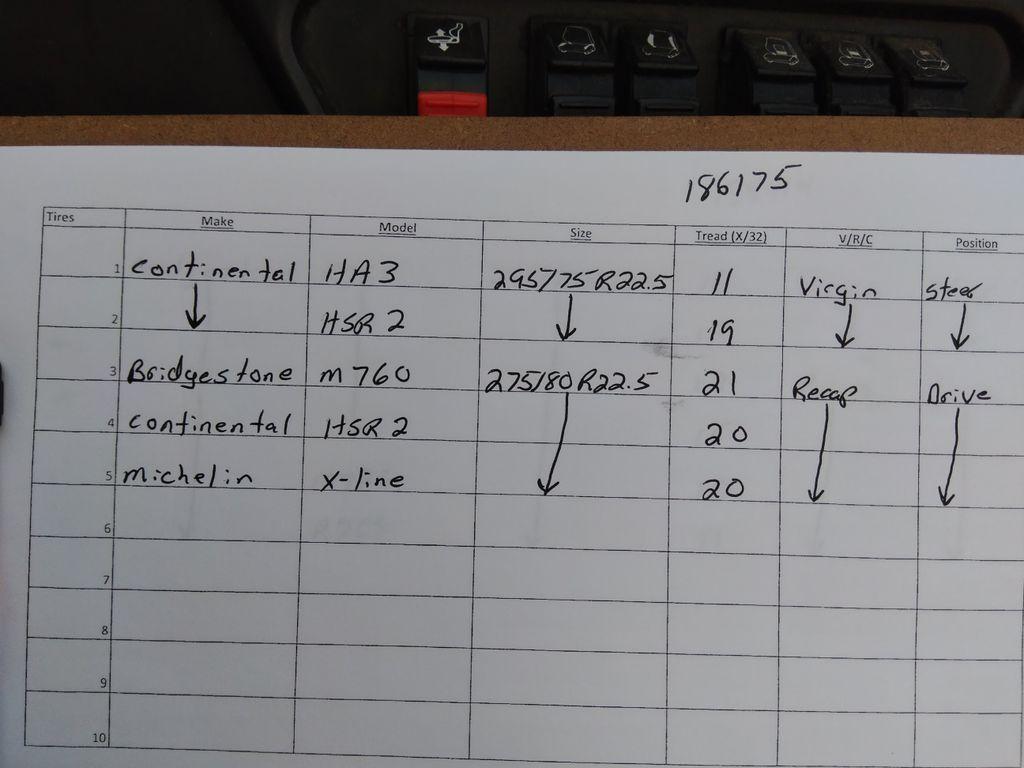 186175
Tires Make Model Size Tread (X/32) V/R/C Position
1 Continental HA3 295/75R22.5 11 Virgin Steer
2 ↓ HSR2 ↓ 19 ↓ ↓
3 Bridgestone m760 275/80R22.5 21 Recap Drive
4 Continental HSR2 20
5 Michelin X-line ↓ 20 ↓ ↓
6
7
8
9
10